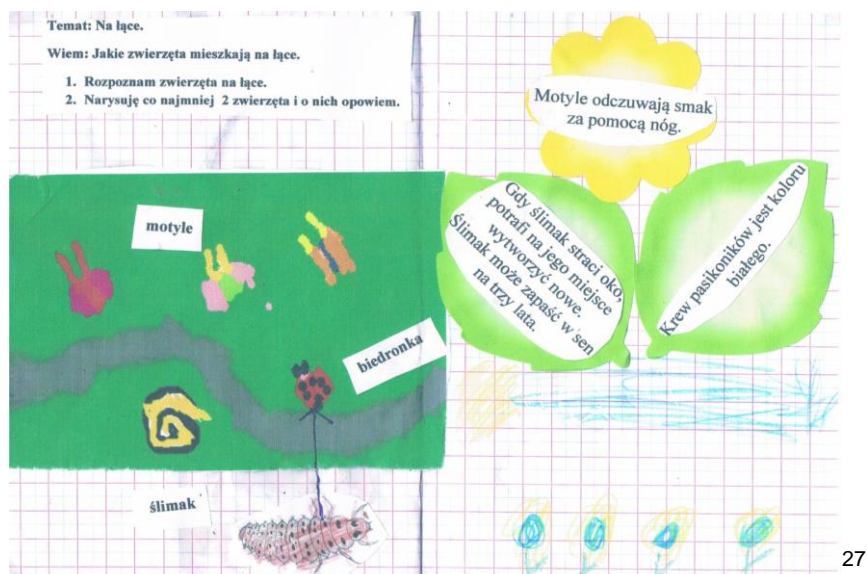 Temat: Na łące.
Wiem: Jakie zwierzęta mieszkają na łące.
1. Rozpoznam zwierzęta na łące.
2. Narysuję co najmniej 2 zwierzęta i o nich opowiem.
Motyle odczuwają smak
za pomocą nóg.
motyle
Gdy ślimak straci oko,
potrafi na jego miejsce
wytworzyć nowe.
Ślimak może zapaść w sen
na trzy lata.
Krew pasikoników jest koloru
białego.
biedronka
ślimak
27